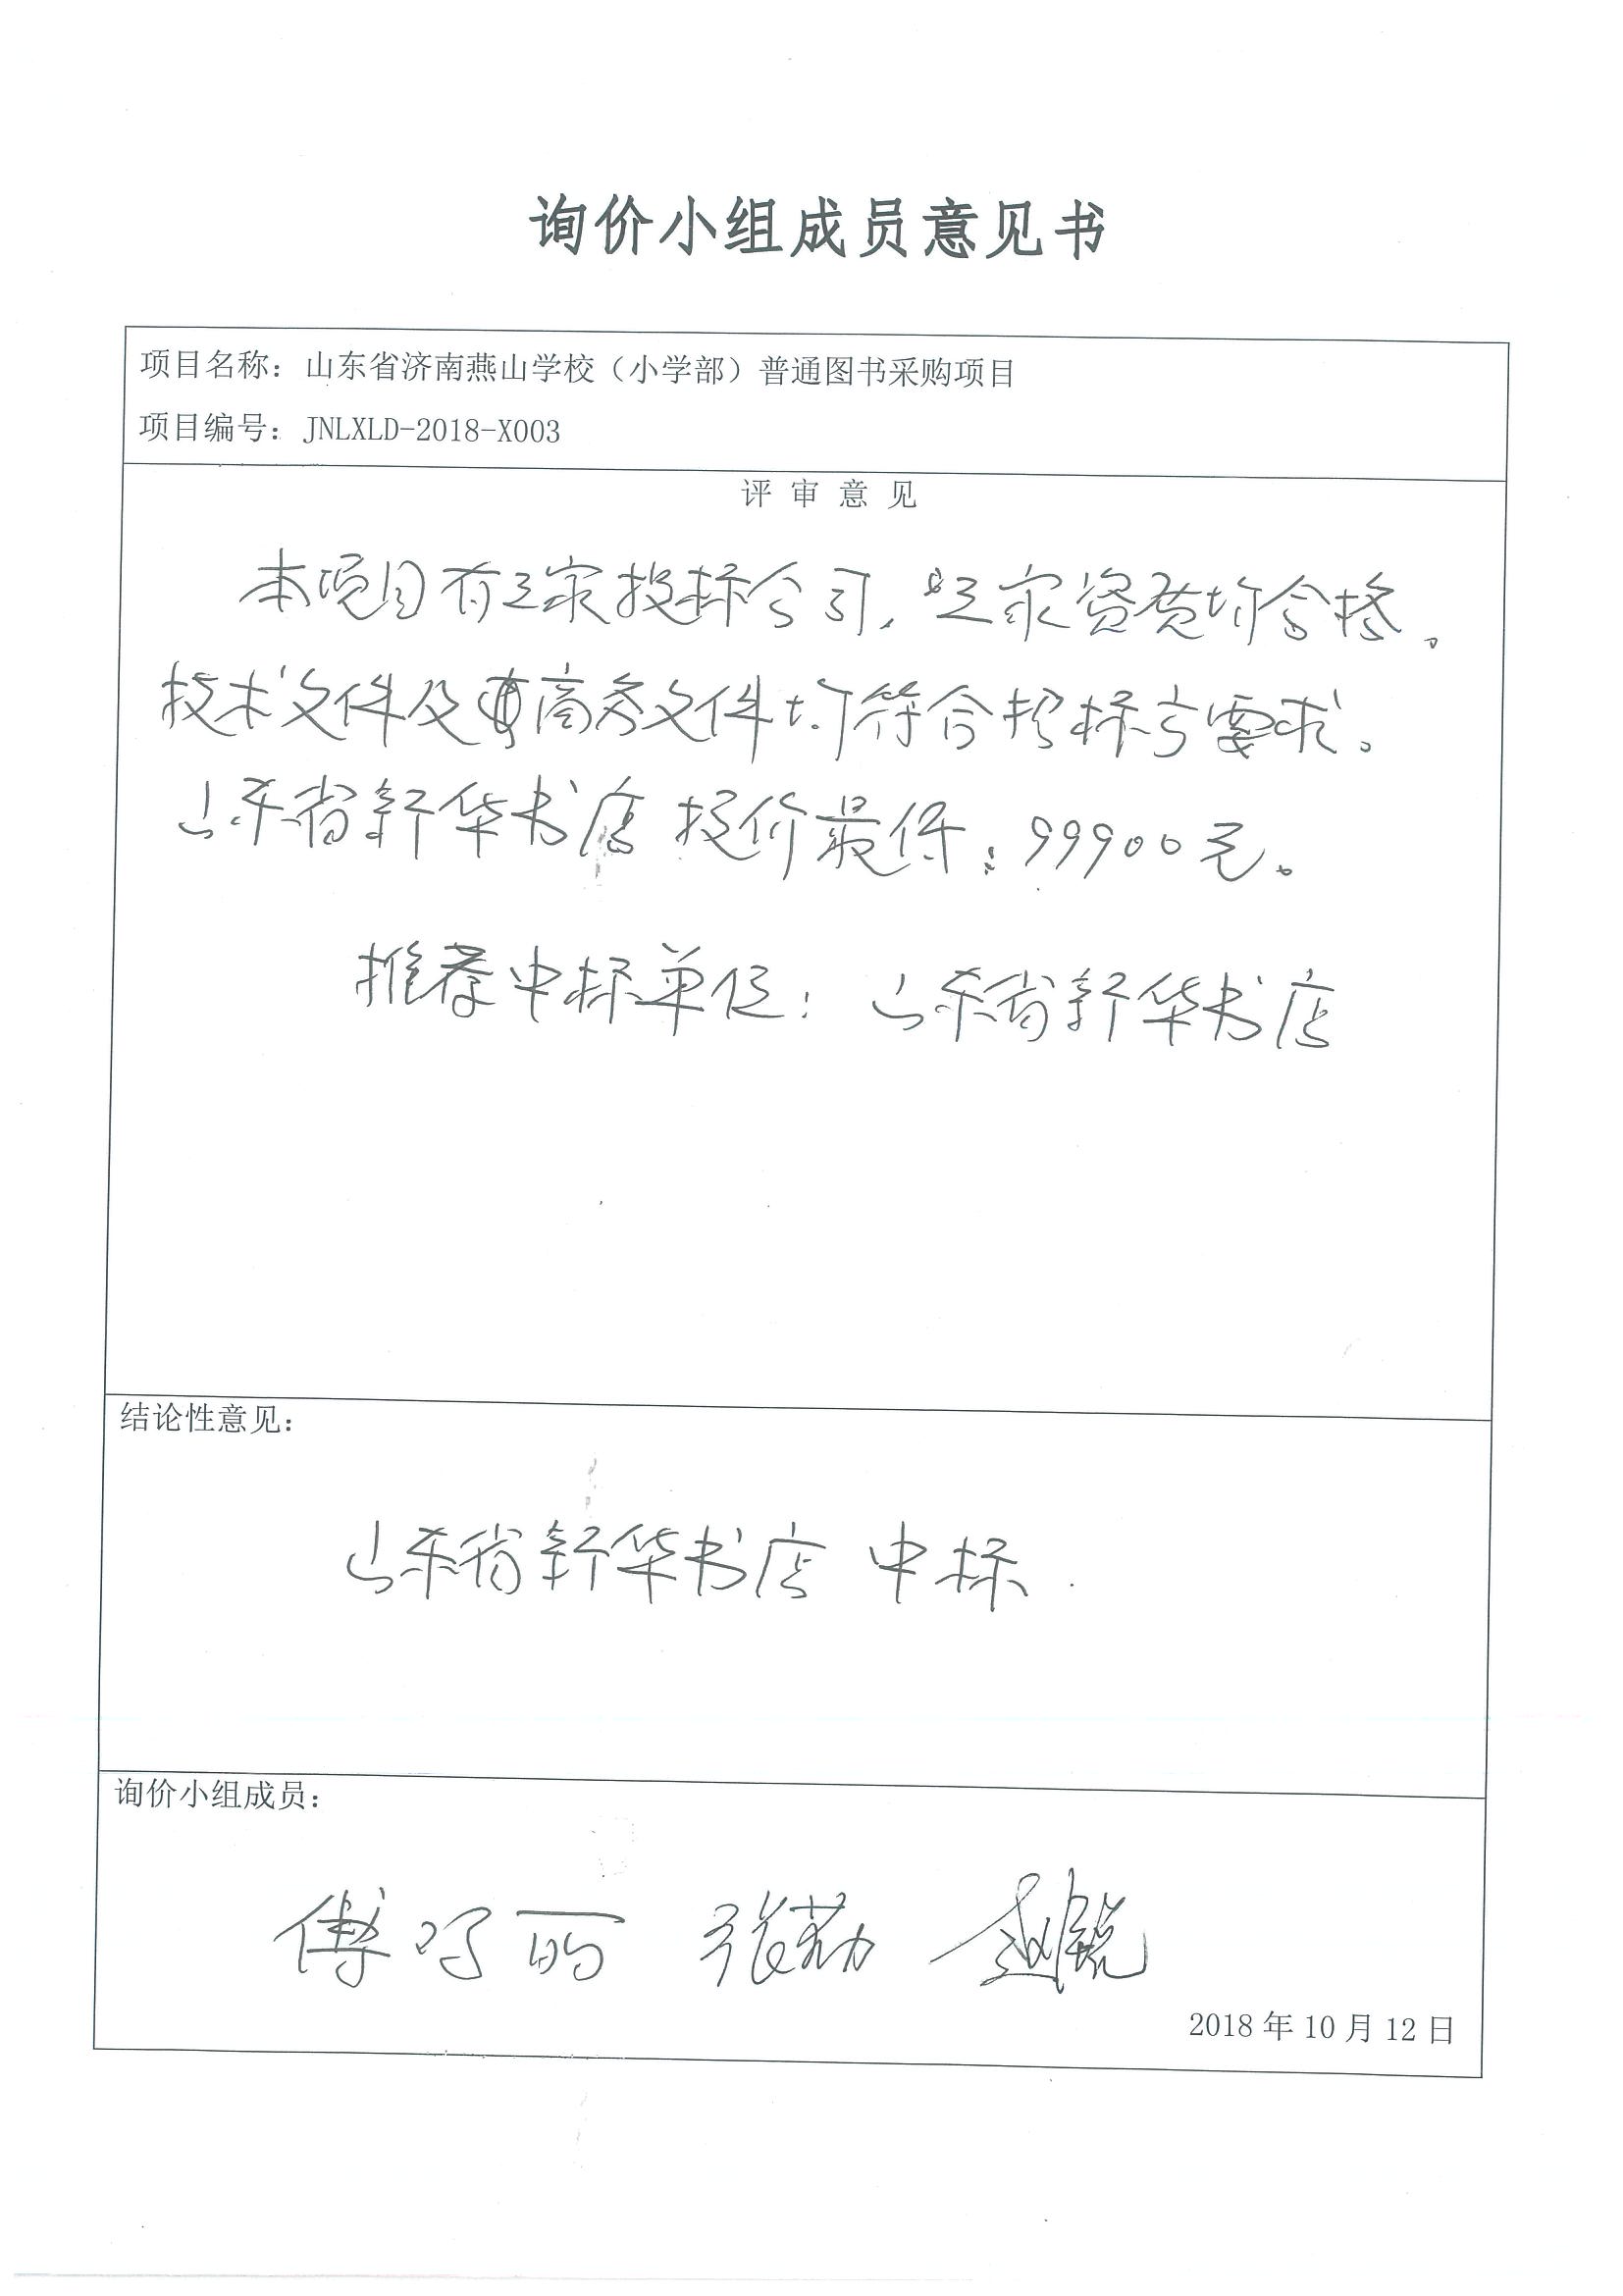 询价小组成员意见书
项目名称：山东省济南燕山学校（小学部）普通图书采购项目
项目编号：JNLXLD-2018-X003
评 审 意 见
本项目有三家投标公司，三家资质均合格。
技术文件及商务文件均符合招标方要求。
山东省新华书店 报价最低：99900元。
推荐中标单位：山东省新华书店
结论性意见：
山东省新华书店 中标.
询价小组成员：
张勤
2018 年 10 月 12 日